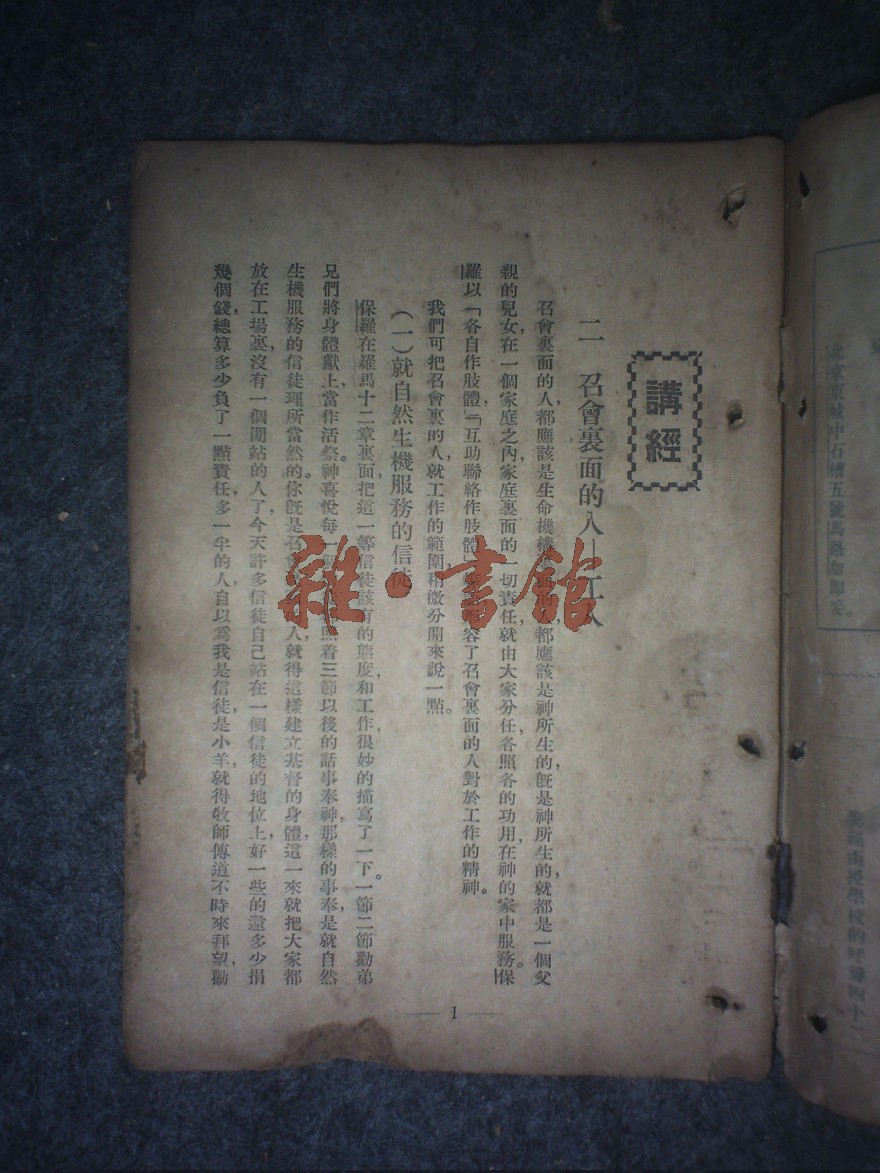 講經
二 召會裏面的人
召會裏面的人，都應該是生命機構 都應該是神所生的，旣是神所生的，就都是一個父
親的兒女，在一個家庭之內，家庭裏面的一切責任，就由大家分任，各照各的功用，在神的家中服務。保
羅以「各自作肢體，」「互助聯絡作肢體」 容了召會裏面的人對於工作的精神。
我們可把召會裏的人，就工作的範圍稍微分開來說一點。
（一）就自然生機服務的信徒
保羅在羅馬十二章裏面，把這一等信徒該有的態度和工作，很妙的描寫了一下。一節二節勸弟
兄們將身體獻上，當作活祭。神喜悅每一 照着三節以後的話事奉神，那樣的事奉，是就自然
生機服務的信徒理所當然的。你旣是召會 人，就得這樣建立基督的身體，這一來就把大家都
放在工場裏，沒有一個閒站的人了，今天許多信徒自己站在一個信徒的地位上，好一些的還多少捐
幾個錢，總算多少負了一點責任，多一半的人，自以爲我是信徒，是小羊，就得牧師傳道不時來拜望，勸
— 1 —
雜·書館
北京東城中石槽五號馬路加師妥。